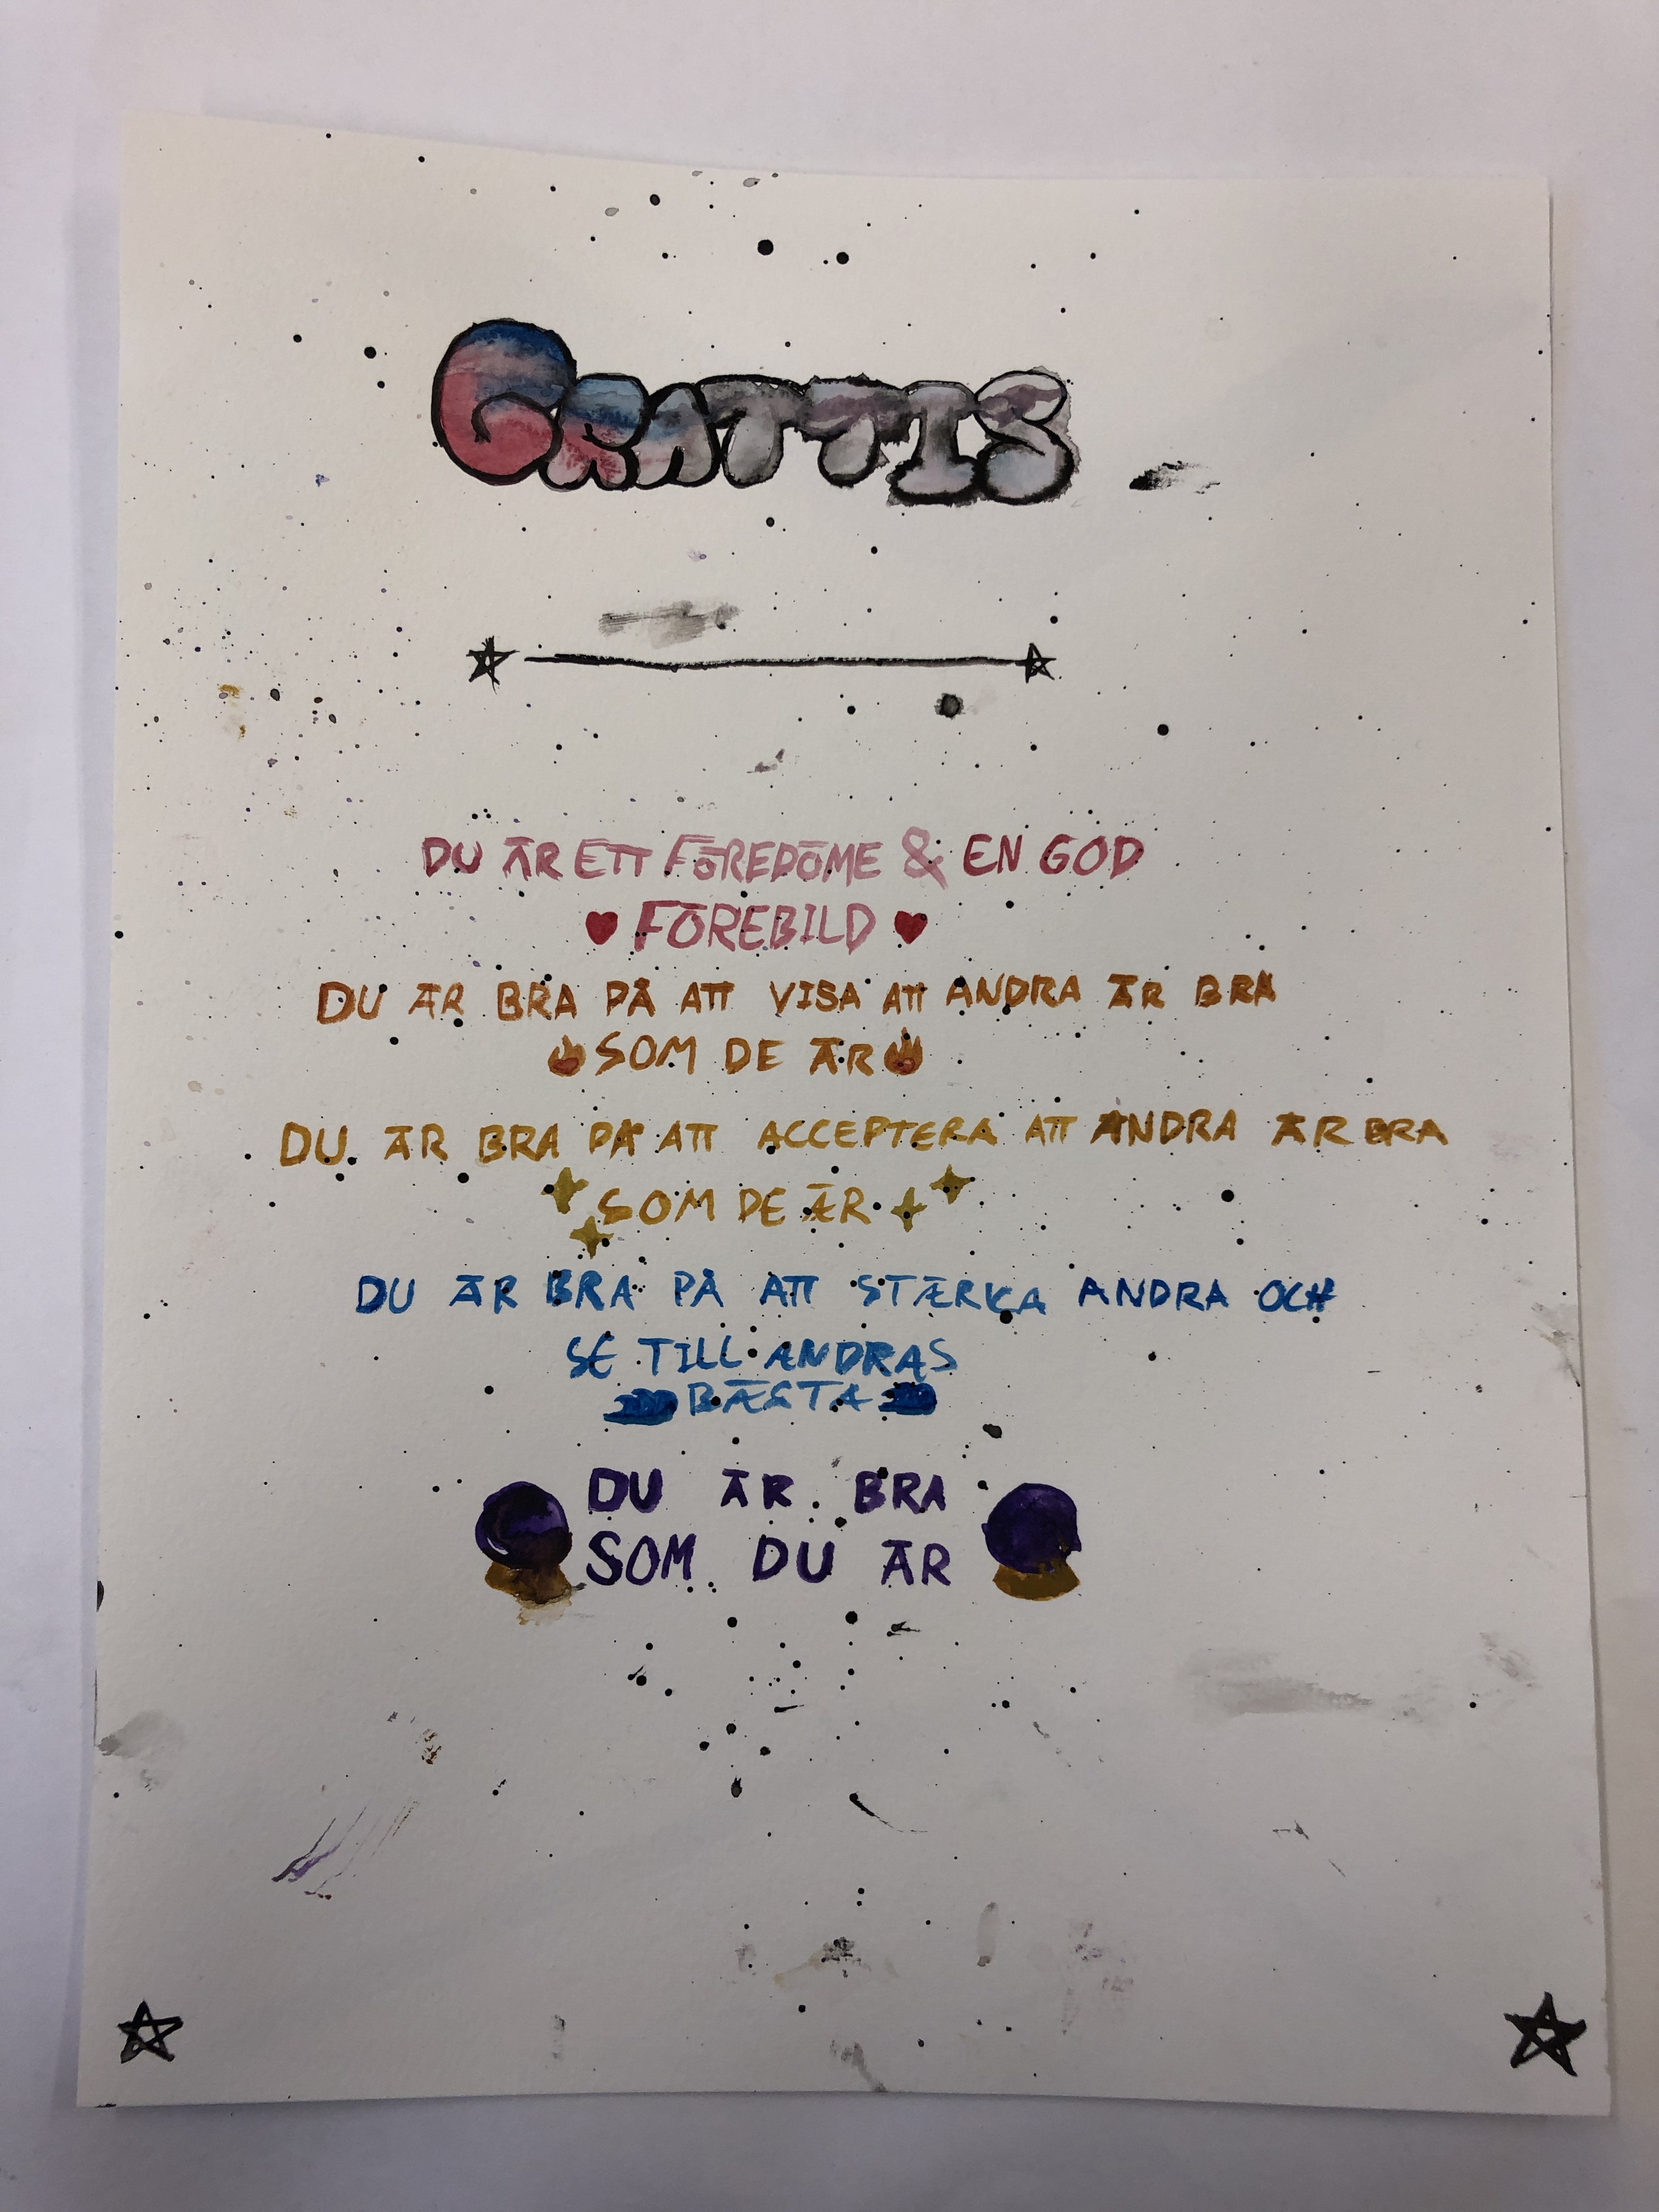 GRATTIS
DU ÄR ETT FÖREDÖME & EN GOD
FÖREBILD
DU ÄR BRA PÅ ATT VISA ATT ANDRA ÄR BRA
SOM DE ÄR
DU ÄR BRA PÅ ATT ACCEPTERA ATT ANDRA ÄR BRA
SOM DE ÄR
DU ÄR BRA PÅ ATT STÆRKA ANDRA OCH
SE TILL ANDRAS
BÆSTA
DU ÄR BRA
SOM DU ÄR